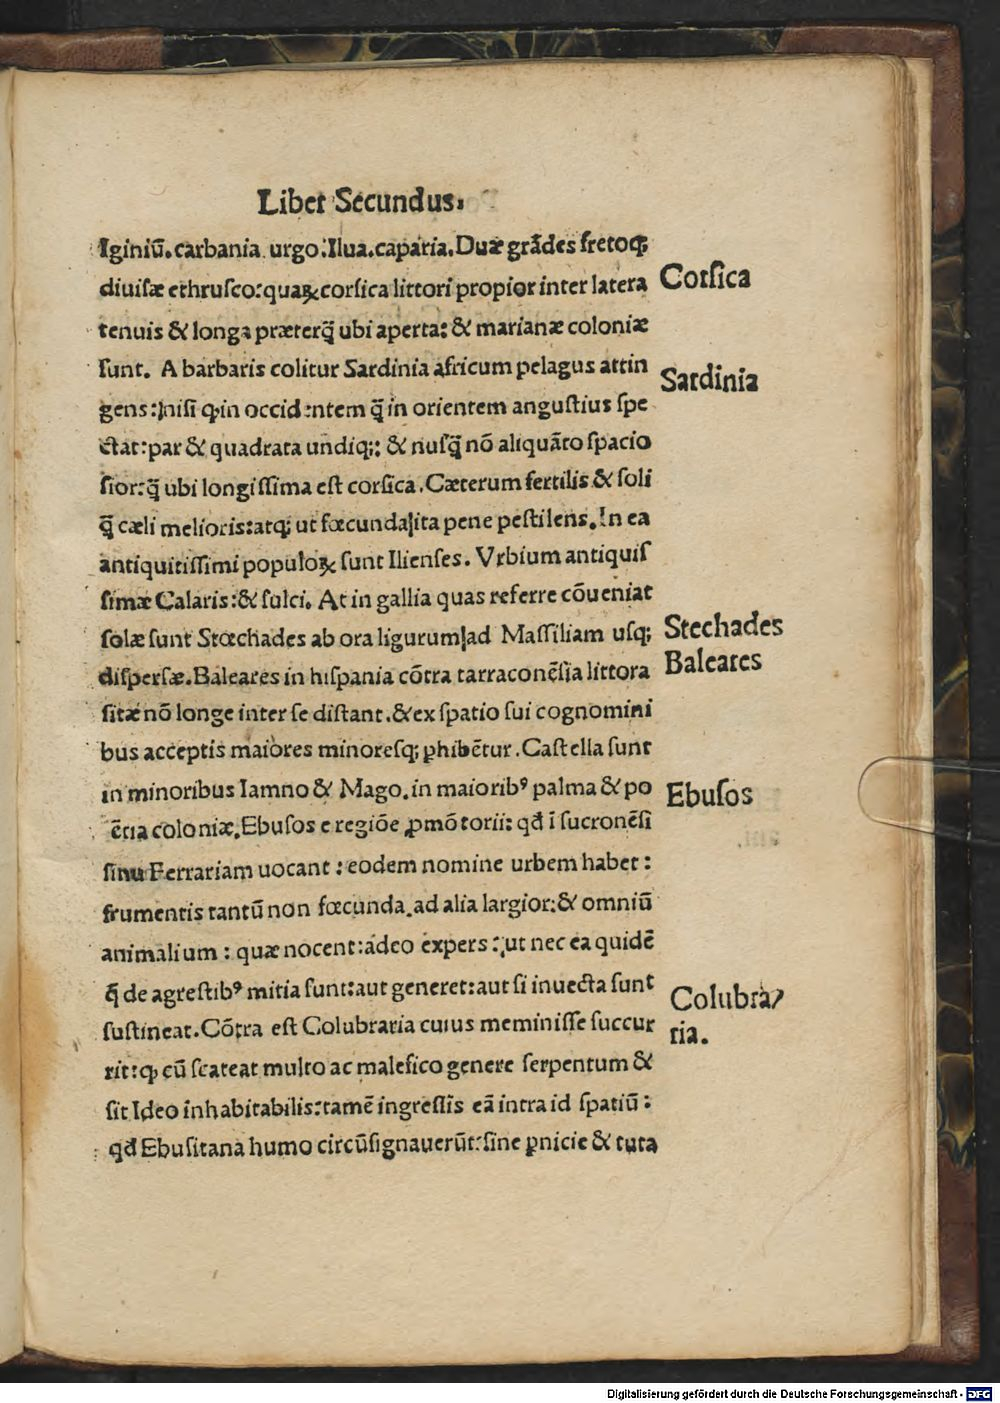 Liber Secundus.
Iginiū. carbania. urgo. Ilua. caparia. Duæ grādes fretoq;
diuisæ ethrusco: quaꝝ corsica littori propior inter latera
Corsica
tenuis & longa præterq̄ ubi aperta: & marianæ coloniæ
sunt. A barbaris colitur Sardinia africum pelagus attin
Sardinia
gens: nisi ꝙ in occidentem q̄ in orientem angustius spe
ctat: par & quadrata undiq;: & nusq̄ nō aliquāto spacio
sior: q̄ ubi longissima est corsica. Cæterum fertilis & soli
q̄ cæli melioris: atq; ut fœcunda ita pene pestilens. In ea
antiquitissimi populoꝝ sunt Ilienses. Vrbium antiquis
simæ Calaris: & sulci. At in gallia quas referre cōueniat
solæ sunt Stœchades ab ora ligurum ad Massiliam usq;
Stechades
dispersæ. Baleares in hispania cōtra tarraconēsia littora
Baleares
sitæ nō longe inter se distant. & ex spatio sui cognomini
bus acceptis maiores minoresq; ꝑhibētur. Castella sunt
in minoribus Iamno & Mago. in maioribꝰ palma & po
Ebusos
ētia coloniæ. Ebusos e regiōe ꝓmōtorii: qđ ī sucronēsi
sinu Ferrariam uocant: eodem nomine urbem habet:
frumentis tantū non fœcunda. ad alia largior: & omniū
animalium: quæ nocent: adeo expers: ut nec ea quidē
q̄ de agrestibꝰ mitia sunt: aut generet: aut si inuecta sunt
Colubra/
sustineat. Cōtra est Colubraria cuius meminisse succur
ria.
rit: ꝙ cū scateat multo ac malefico genere serpentum &
sit Ideo inhabitabilis: tamē ingressis eā intra id spatiū:
qđ Ebusitana humo circūsignauerūt: sine ꝑnicie & tuta
Digitalisierung gefördert durch die Deutsche Forschungsgemeinschaft - DFG